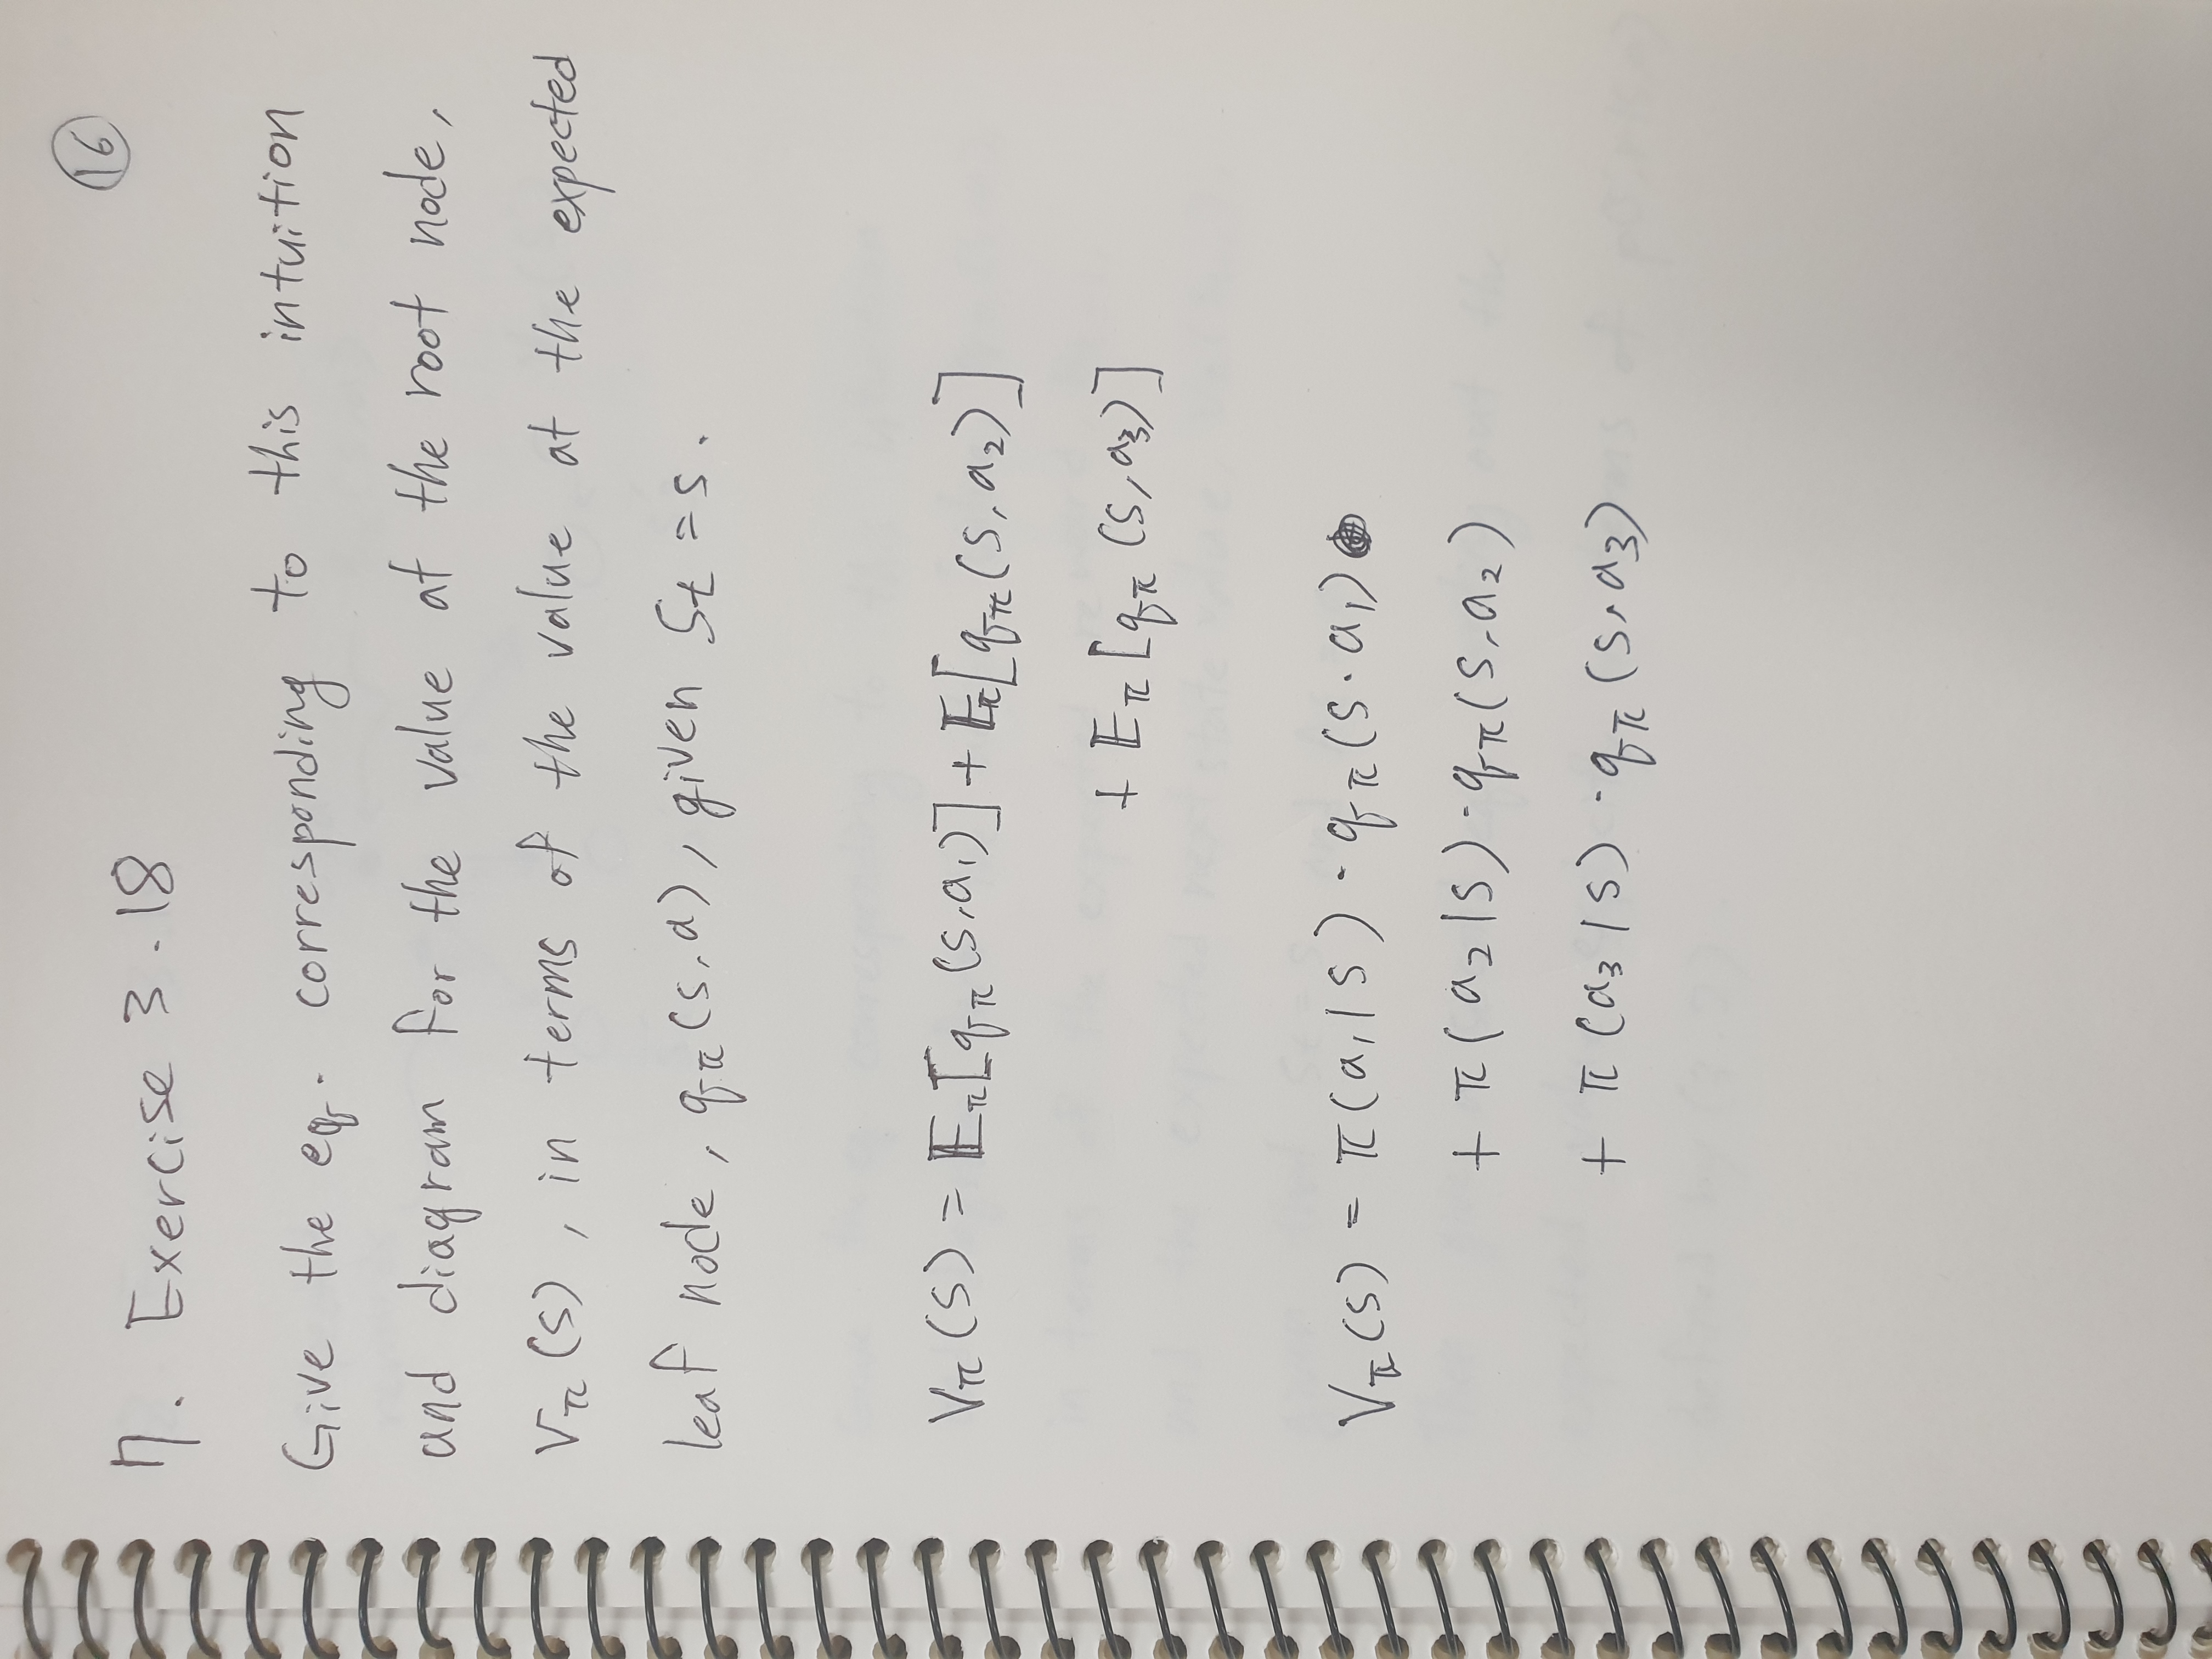 16
7. Exercise 3.18
Give the eq. corresponding to this intuition
and diagram for the value at the root node,
Vπ(s), in terms of the value at the expected
leaf node, qπ(s,a), given St = s.
Vπ(s) = 𝔼π[qπ(s,a₁)] + 𝔼π[qπ(s,a₂)]
+ 𝔼π[qπ(s,a₃)]
Vπ(s) = π(a₁|s) · qπ(s.a₁)
+ π(a₂|s) · qπ(s,a₂)
+ π(a₃|s) · qπ(s,a₃)